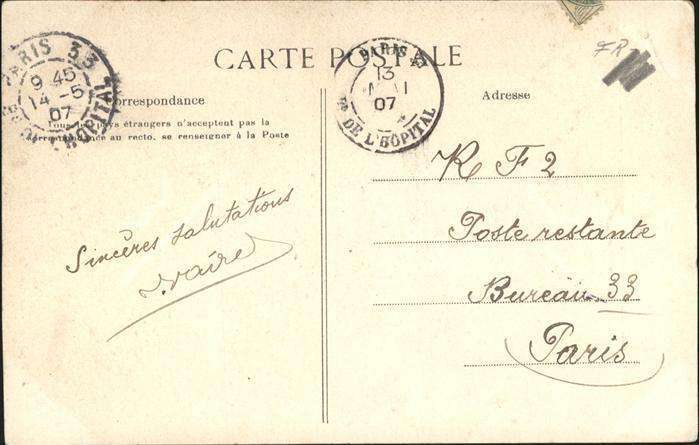 CARTE POSTALE
PARIS 33
9 45
14 -5
07
DE L'HÔPITAL
PARIS
13
MAI
07
DE L'HÔPITAL
FR
Correspondance
Tous les pays étrangers n'acceptent pas la
correspondance au recto, se renseigner à la Poste
Adresse
Sincères salutations
K F 2
Poste restante
Bureau 33
Paris